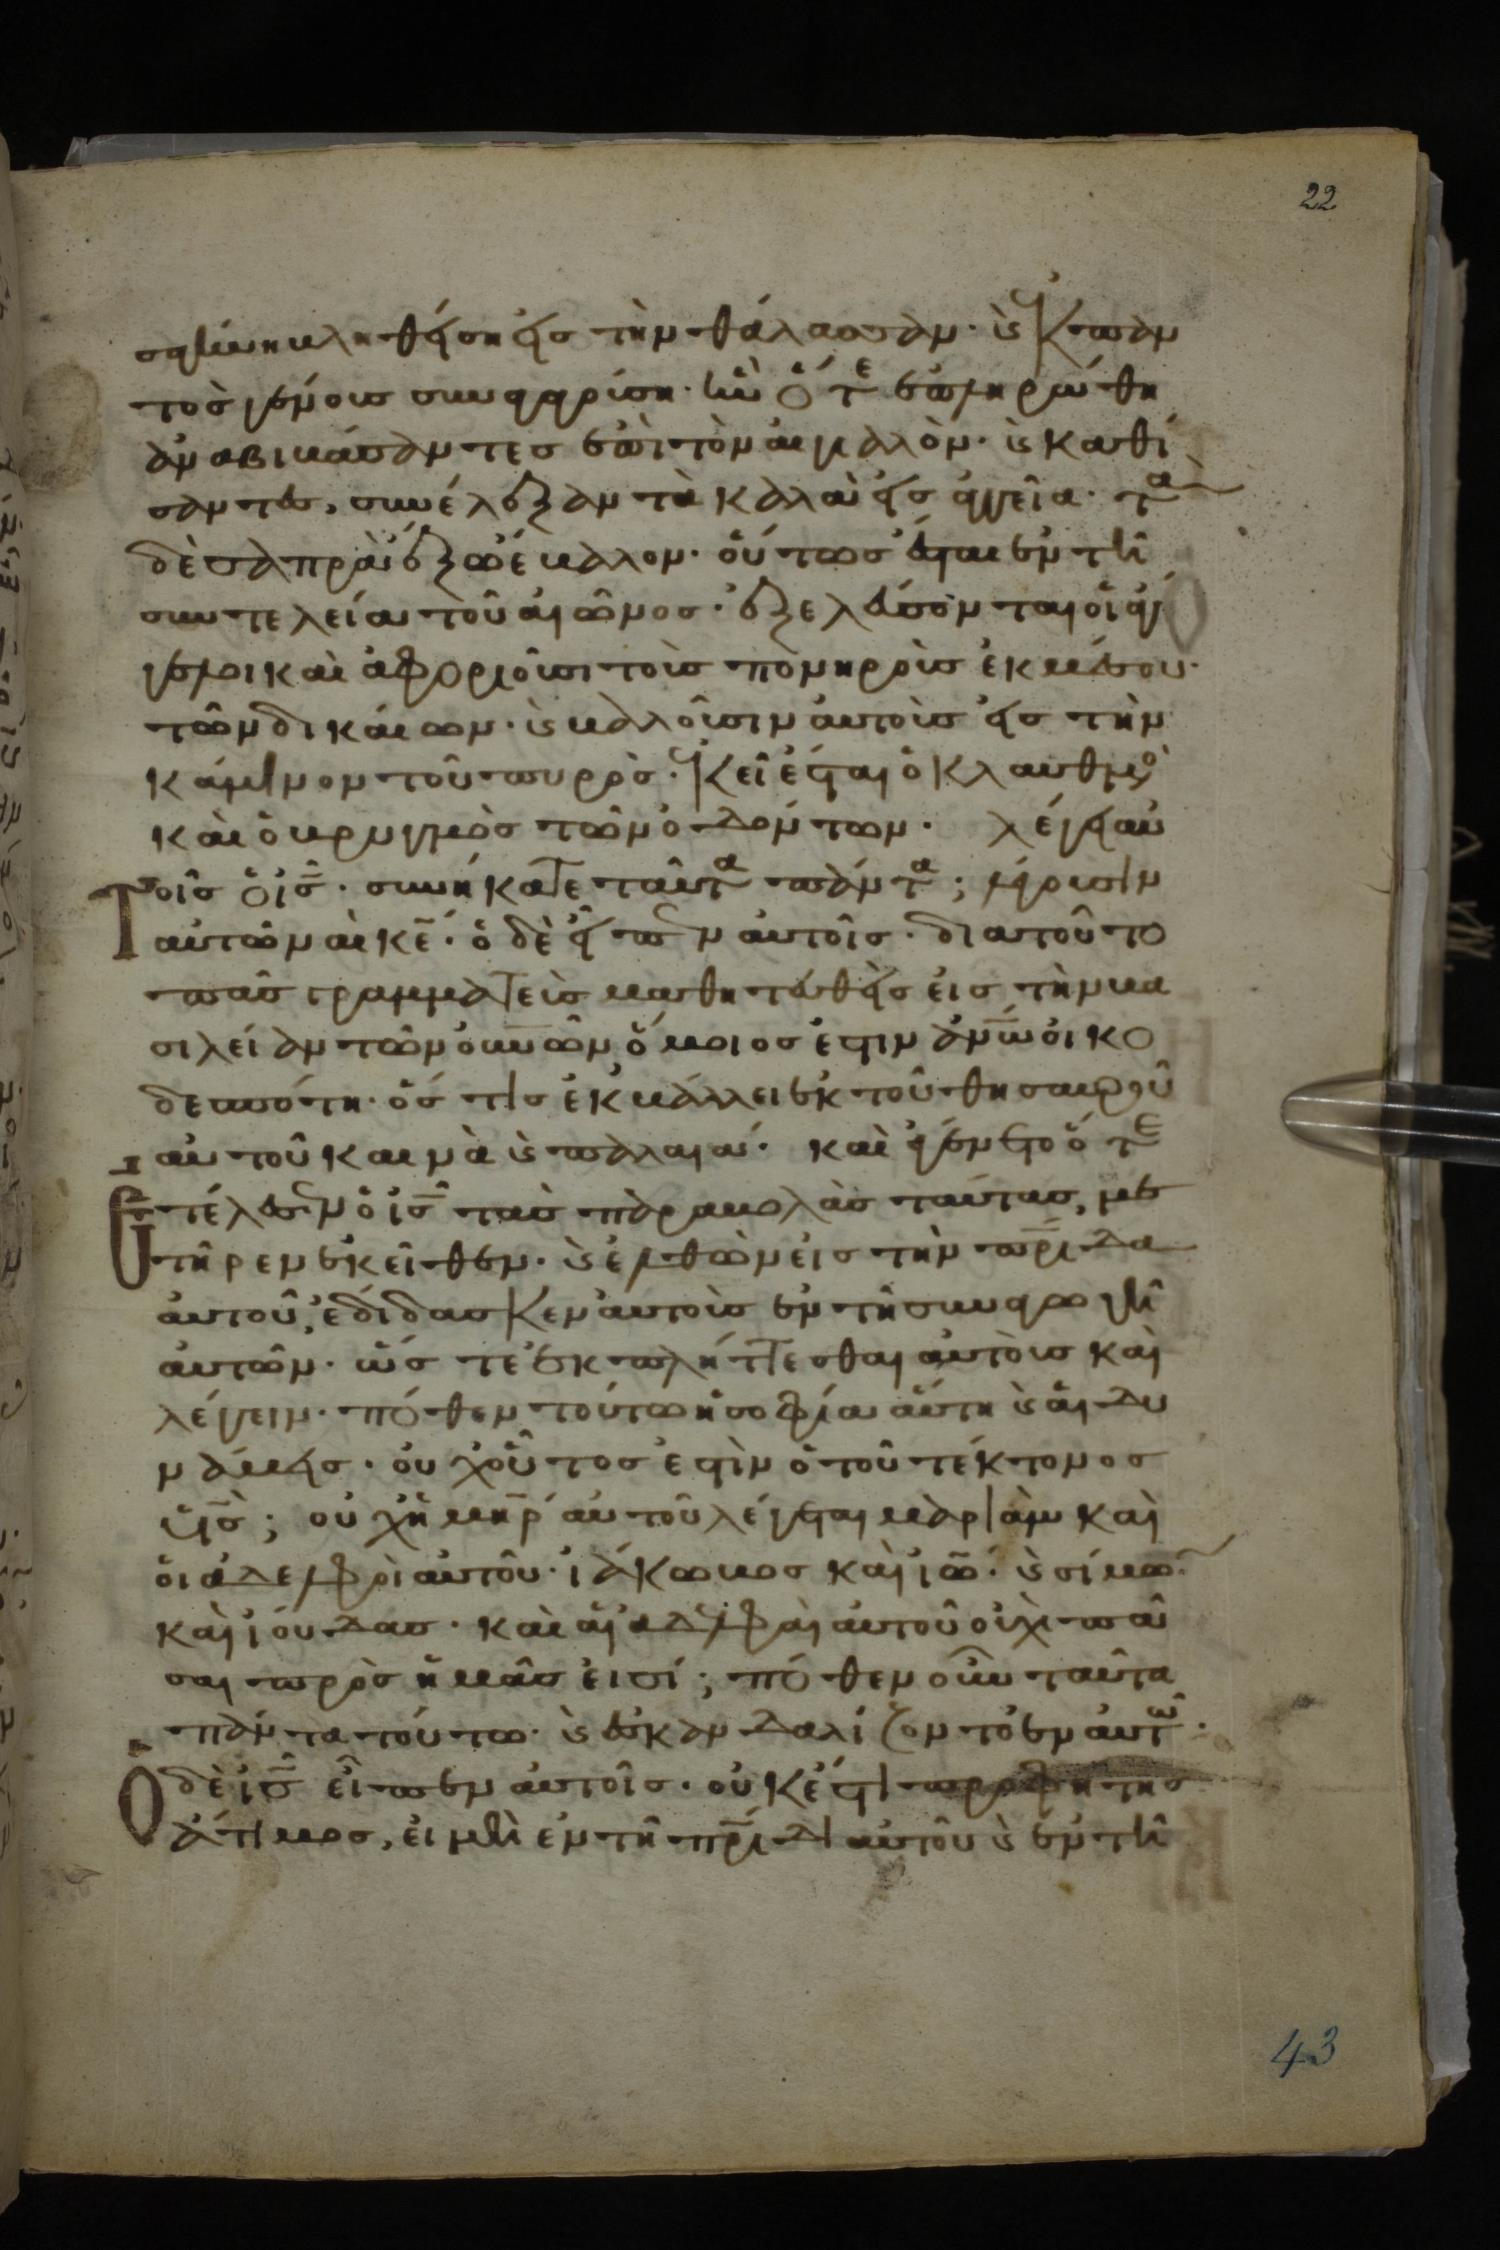 22
σαγήνη βληθείση εἰς τὴν θάλασσαν· καὶ ἐκ παν
τὸς γένους συναγαγούση· ἣν ὅτε ἐπληρώθη
ἀναβιβάσαντες ἐπὶ τὸν αἰγιαλὸν· καὶ καθί
σαντες, συνέλεξαν τὰ καλὰ εἰς ἀγγεῖα· τὰ
δὲ σαπρὰ ἔξω ἔβαλον· οὕτως ἔσται ἐν τῆ
συντελεία τοῦ αἰῶνος· ἐξελεύσονται οἱ ἄγ
γελοι καὶ ἀφοριοῦσι τοὺς πονηροὺς ἐκ μέσου·
τῶν δικαίων· καὶ βαλοῦσιν αὐτοὺς εἰς τὴν
κάμινον τοῦ πυρὸς· ἐκεῖ ἔσται ὁ κλαυθμὸ
καὶ ὁ βρυγμὸς τῶν ὀδόντων· λέγει αὐ
τοῖς ὁ ις· συνήκατε ταῦτα πάντα; λέγουσιν
αὐτῶ ναὶ κε· ὁ δὲ εἶπεν αὐτοῖς· διατοῦτο
πᾶς γραμματεὺς μαθητευθεὶς εἰς τὴν βα
σιλείαν τῶν οὐνῶν ὅμοιος ἐστιν ἀνω οἰκο
δεσπότη· ὅς τις ἐκβάλλει ἐκ τοῦ θησαυροῦ
αὐτοῦ καινὰ καὶ παλαιά· καὶ ἐγένετο ὅτε
ἐτέλεσεν ὁ ις τὰς παραβολὰς ταύτας, με
τῆρεν ἐκεῖθεν· καὶ ἐλθὼν εἰς τὴν πρίδα
αὐτοῦ, ἐδίδασκεν αὐτοὺς ἐν τῆ συναγωγῆ
αὐτῶν· ὥς τε ἐκπλήττεσθαι αὐτοὺς καὶ
λέγειν· πόθεν τούτω ἡ σοφία αὕτη καὶ αἱ δυ
νάμεις· οὐχ οὗτος ἐστὶν ὁ τοῦ τέκτονος
υις; οὐχὶ ἡ μηρ αὐτοῦ λέγεται μαριὰμ καὶ
οἱ ἀδελφοὶ αὐτοῦ· ἰάκωβος καὶ ἰω· καὶ σίμω·
καὶ ἰούδας· καὶ αἱ ἀδελφαὶ αὐτοῦ οὐχὶ πᾶ
σαι πρὸς ἡμᾶς εἰσί; πόθεν οὖν ταῦτα
πάντα τούτω· καὶ ἐσκανδαλίζοντο ἐν αὐτῶ·
ὁ δὲ ις εἶπεν αὐτοῖς· οὐκ ἔστι προφήτης
ἄτιμος, εἰ μὴ ἐν τῆ πρίδι αὐτοῦ καὶ ἐν τῆ
43